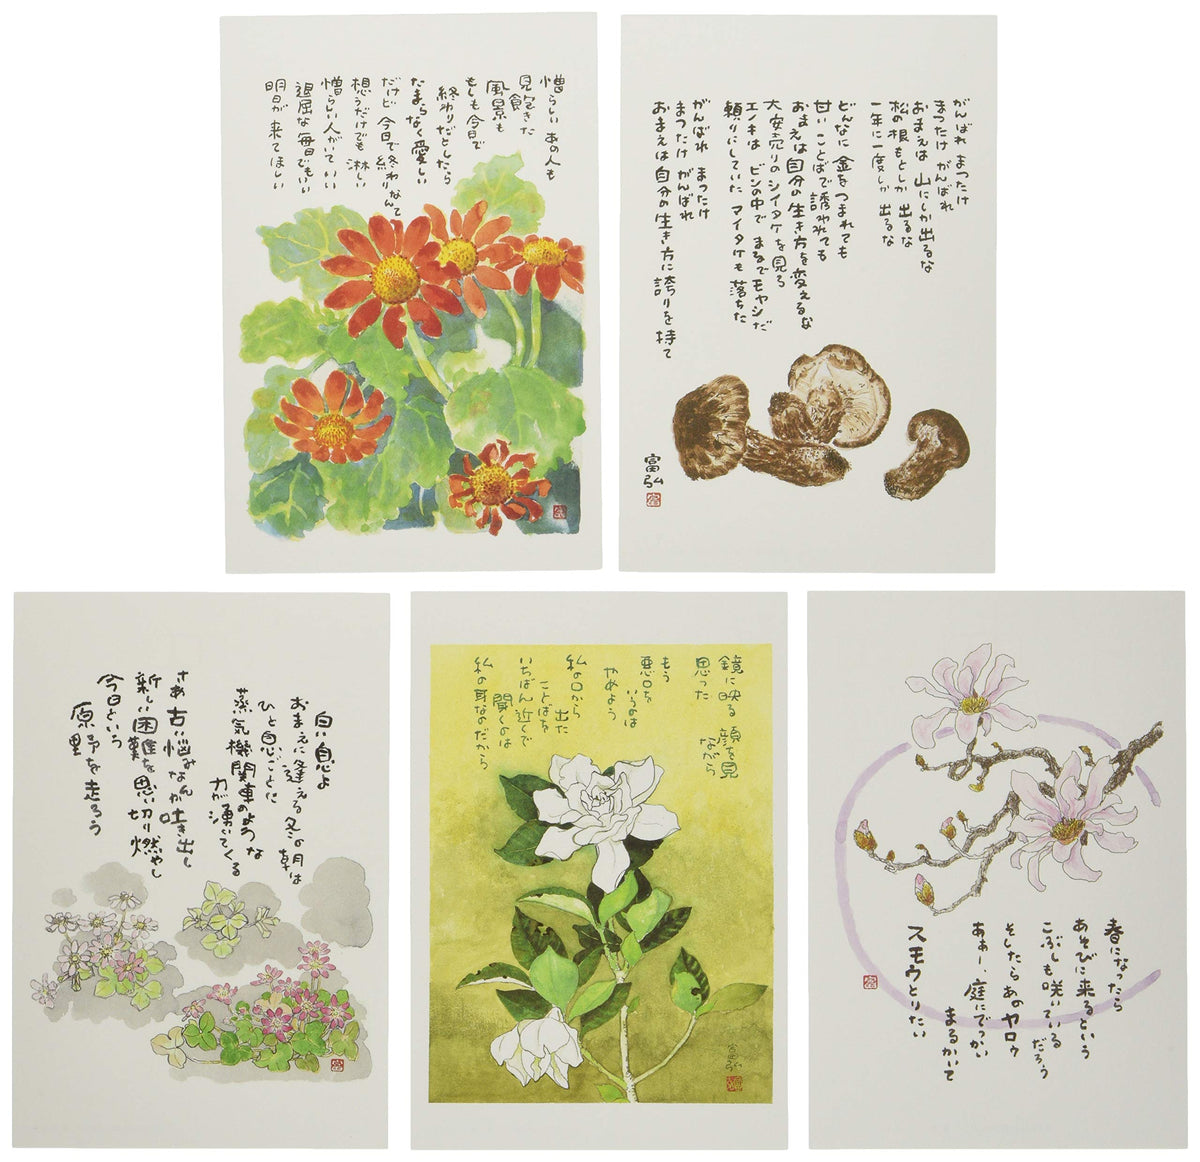 憎らしい あの人も
見飽きた
風景も
もしも今日で
終わりだとしたら
たまらなく愛しい
だけど 今日で終わりなんて
想うだけでも 淋しい
憎らしい人がいて いい
退屈な 毎日でもいい
明日が 来てほしい
がんばれ まつたけ
まつたけ がんばれ
おまえは 山にしか出るな
松の根もとしか 出るな
一年に一度しか 出るな
どんなに 金をつまれても
甘い ことばで 誘われても
おまえは 自分の生き方を 変えるな
大安売りの シイタケを見ろ
エノキは ビンの中で まるでモヤシだ
頼りにしていた マイタケも 落ちた
がんばれ まつたけ
まつたけ がんばれ
おまえは 自分の生き方に 誇りを 持て
富弘
白い息よ
おまえに 逢える 冬の朝は
ひと息ごとに
蒸気機関車のような
力が 湧いてくる
さあ 古い悩みなんか 吐き出し
新しい 困難を 思い切り 燃やし
今日という
原野を 走ろう
鏡に映る 顔を見
ながら
思った
もう
悪口を
いうのは
やめよう
私の口から 出た
ことばを
いちばん近くで
聞くのは
私の耳なのだから
富弘
春になったら
あそびに 来るという
こぶしも 咲いている
だろう
そしたら あのヤロウ
あぁー、庭に でっかい
まるかいて
スモウとりたい